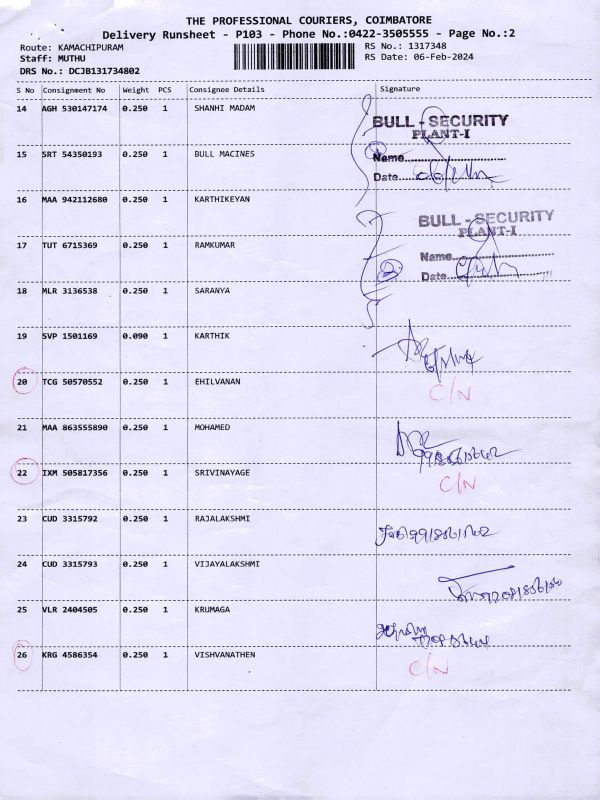 THE PROFESSIONAL COURIERS, COIMBATORE
Delivery Runsheet - P103 - Phone No.:0422-3505555 - Page No.:2
Route: KAMACHIPURAM RS No.: 1317348
Staff: MUTHU RS Date: 06-Feb-2024
DRS No.: DCJB131734802
S No Consignment No Weight PCS Consignee Details Signature
14 AGH 530147174 0.250 1 SHANHI MADAM
BULL - SECURITY
PLANT-I
15 SRT 54350193 0.250 1 BULL MACINES
Name
Date
16 MAA 942112680 0.250 1 KARTHIKEYAN
BULL - SECURITY
PLANT-I
17 TUT 6715369 0.250 1 RAMKUMAR
Name
Date
18 MLR 3136538 0.250 1 SARANYA
19 SVP 1501169 0.090 1 KARTHIK
20 TCG 50570552 0.250 1 EHILVANAN
C/N
21 MAA 863555890 0.250 1 MOHAMED
22 IXM 505817356 0.250 1 SRIVINAYAGE
C/N
23 CUD 3315792 0.250 1 RAJALAKSHMI
24 CUD 3315793 0.250 1 VIJAYALAKSHMI
25 VLR 2404505 0.250 1 KRUMAGA
26 KRG 4586354 0.250 1 VISHVANATHEN
C/N